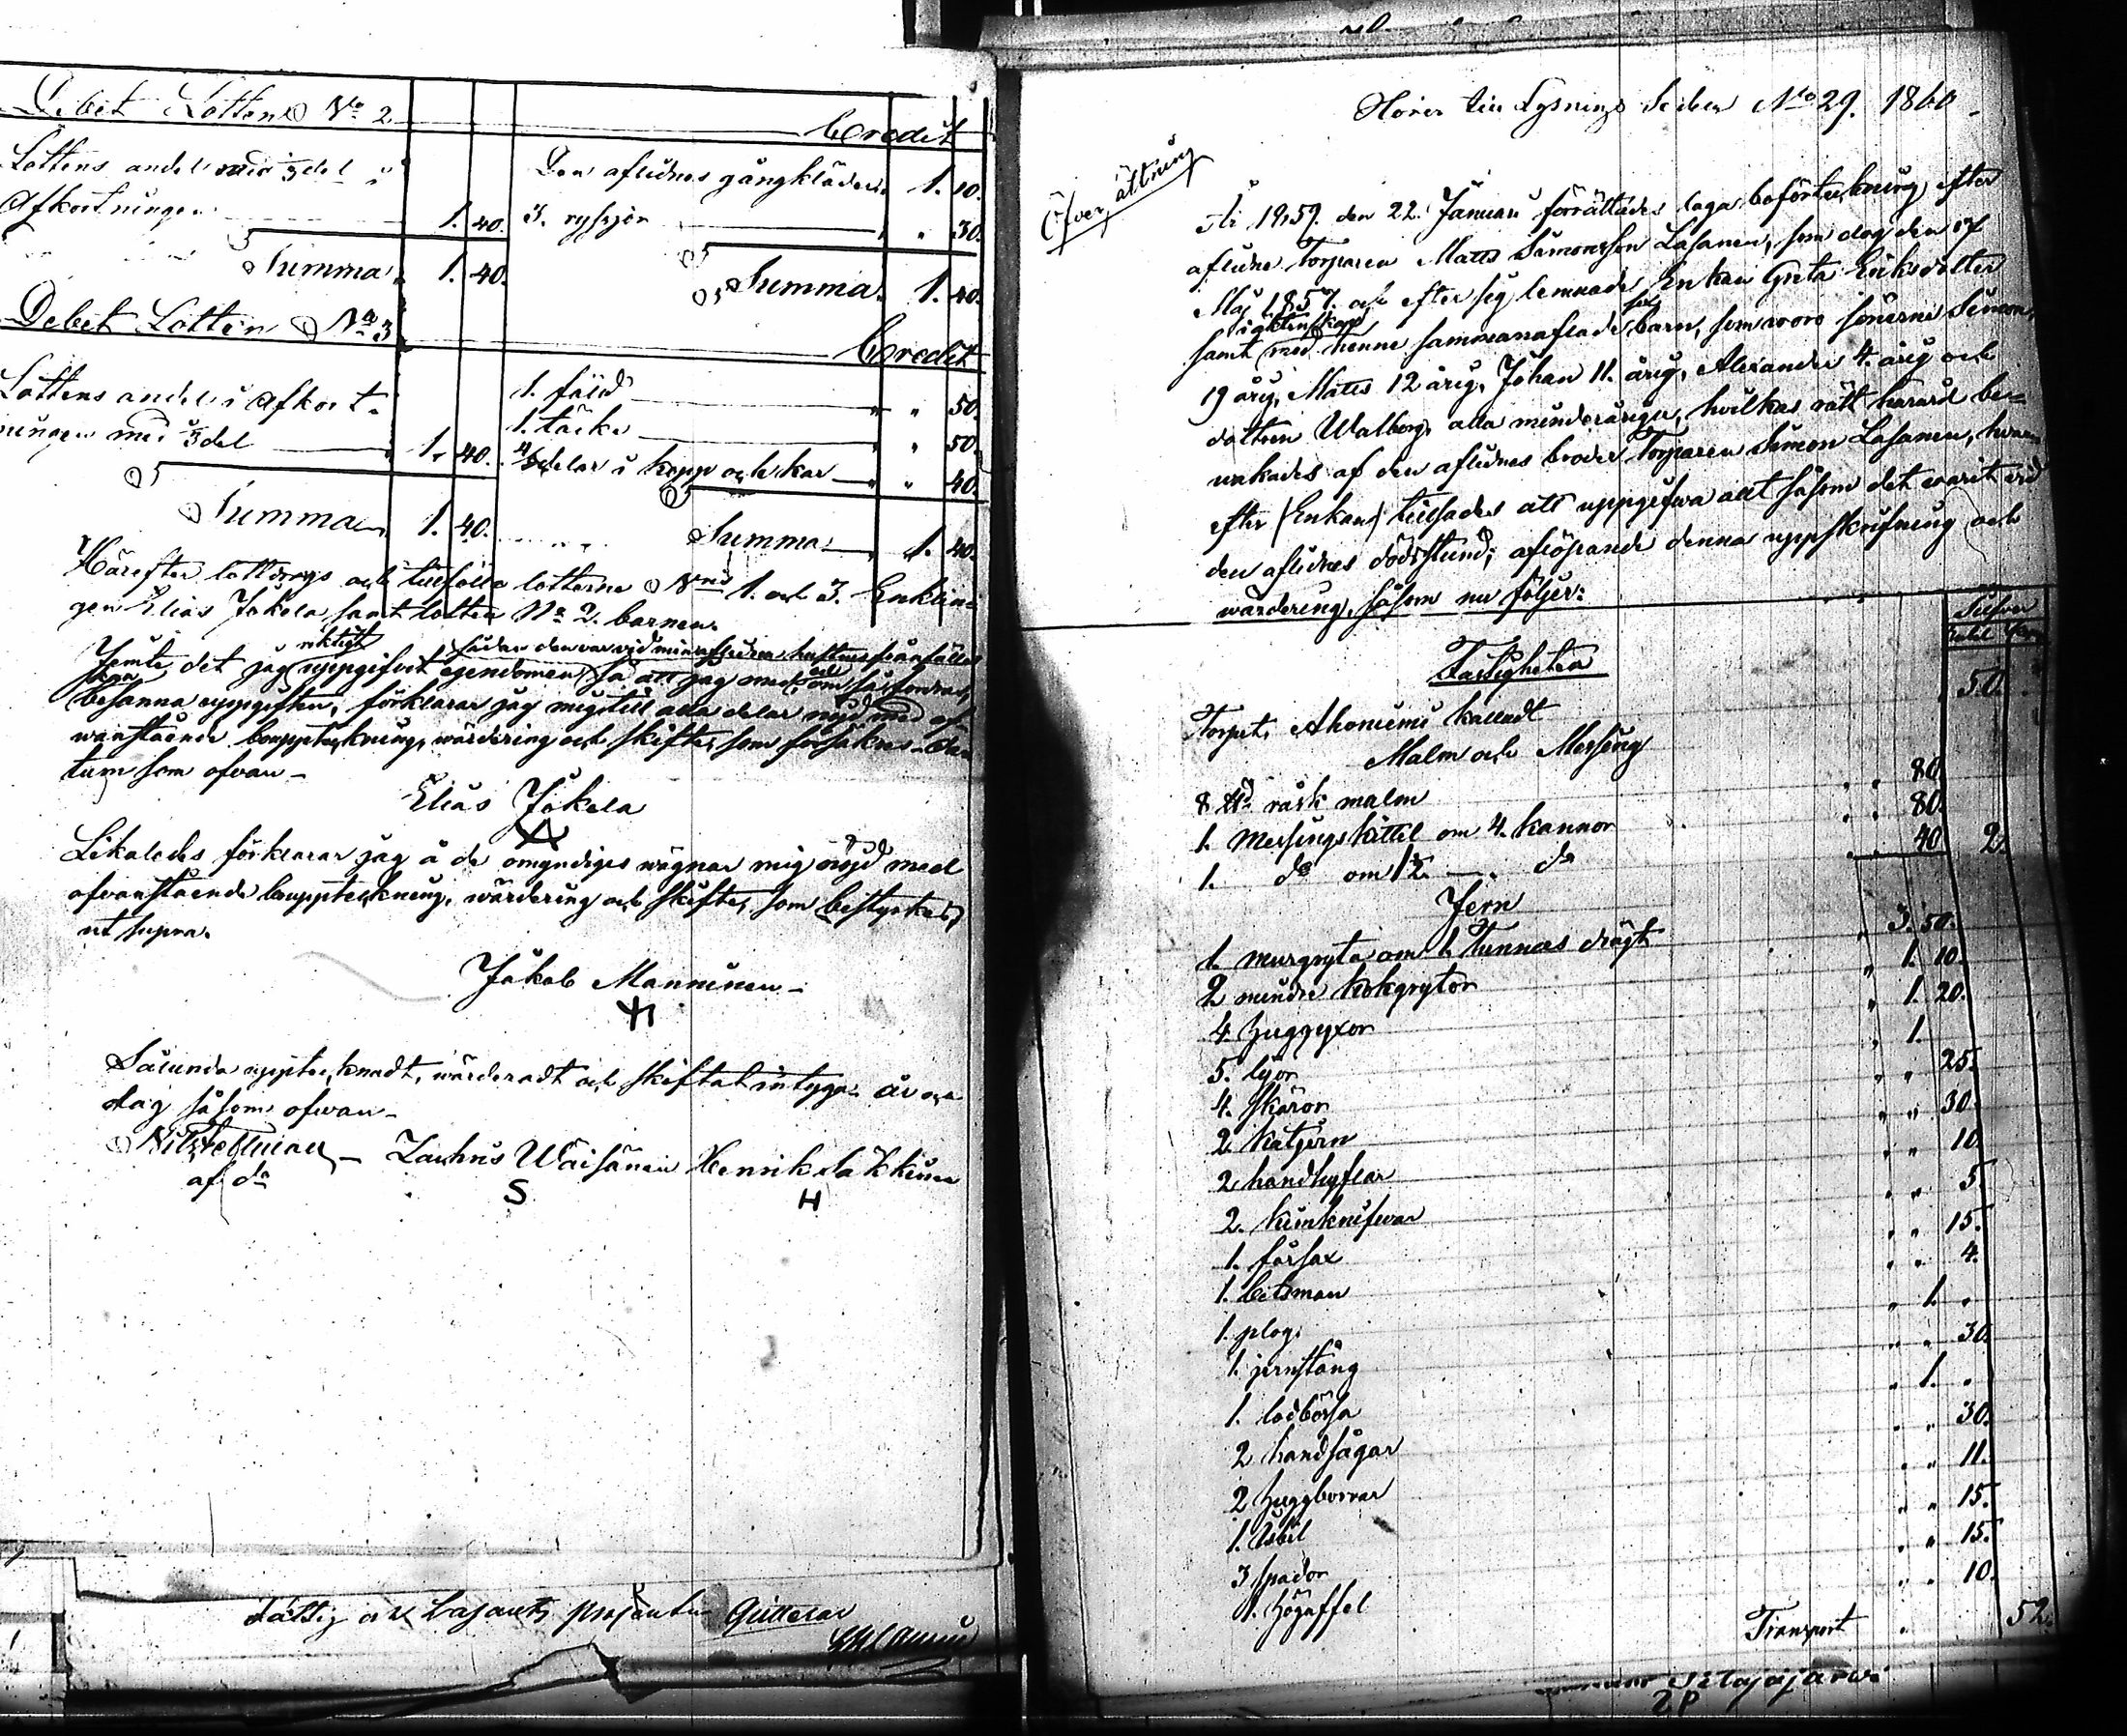 Debet Lotten No 2 Credit
Lottens andel med 1/3 del i
Afkortningen 1. 40.
Summa 1. 40.
Den aflidnes gångkläder 1. 10.
3. ryssjor " 30.
Summa 1. 40.
Debet Lotten No 3 Credit
Lottens andel i Afkort-
ningen med 1/3 del 1. 40.
Summa 1. 40.
1. fäld " 50.
1. täcke " 50.
delar i kopp och kar " 40.
Summa 1. 40.
Härefter lottdrogs och tillföllo lotterne Nris 1. och 3. Enklin-
gen Elias Jokela samt lotten No 2. barnen.
Jemte det jag riktigt uppgifvit egendomen sådan den var vid min aflidna hustrus frånfälle
så att jag med ed om så fordras,
kan besanna uppgiften, förklarar jag mig till alla delar nöjd med of-
wanstående bouppteckning, wärdering och skifte, som försäkras. Da-
tum som ofvan -
Elias Jokela
Likaledes förklarar jag å de omyndiges wägnar mig nöjd med
ofvanstående bouppteckning, wärdering och skifte, som bestyrkes,
ut supra.
Jakob Manninen -
Sålunda uppteknadt, wärderadt och skiftat intyga år och
dag såsom ofvan -
Zachris Wäisänen Henrik
af do
S H
Höres till Lysnings Sedeln No 29. 1860
Öfversättning
År 1859 den 22. Januari förrättades laga boförteckning efter
aflidne Torparen Matts Simonsson Lasanen, som dog den 17
Maj 1857. och efter sig lemnade Enkan Greta Eriksdotter
samt i äktenskap med henne sammanaflade sex barn, som woro sönerne Simon
19 årig, Matts 12 årig, Johan 11. årig, Alexander 4. årig och
dottren Walborg, alla minderåriga, hvilkas rätt härwid be-
wakades af den aflidnes broder Torparen Simon Lasanen, hvar-
efter Enkan tillsades att uppgifwa allt såsom det warit vid
den aflidnes dödsstund; aflöpande denna uppskrifning och
wärdering, såsom nu följer:
Silfver
Rubel Kop
Fastigheten
Torpet, Ahoniemi kalladt 50.
Malm och Messing
8 ℔ rask malm " " 80.
1. Messings kittel om 4. kannor " " 80.
1. do om 1½ — do " " 40 2.
Jern
1. murgryta om 1. Tunnas drägt " 3. 50.
2 mindre kokgrytor " 1. 10.
4. huggyxor " 1. 20.
5. lijor " 1.
4. skäror " " 25.
2 katjern " " 30.
2 handhyflar " " 10.
2. kimknifwar " " 5.
1. fårsax " " 15.
1. betsman " " 4.
1. plog " 1. "
1. jernstång " " 30.
1. lodbössa " 1. "
2 handsågar " " 30.
2 huggborrar " " 11.
1. Isbil " " 15.
3 spador " " 15.
1. högaffel " " 10.
Transport " 52.